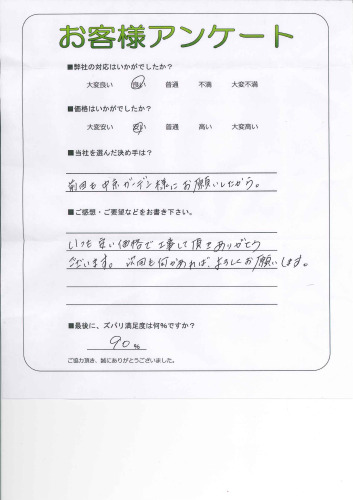 お客様アンケート
■弊社の対応はいかがでしたか?
大変良い 良い 普通 不満 大変不満
■価格はいかがでしたか?
大変安い 安い 普通 高い 大変高い
■当社を選んだ決め手は?
前回も中京ガーデン様にお願いしたから。
■ご感想・ご要望などをお書き下さい。
いつも安い価格で工事して頂きありがとう
ございます。次回も何かあれば、よろしくお願いします。
■最後に、ズバリ満足度は何%ですか?
90%
ご協力頂き、誠にありがとうございました。